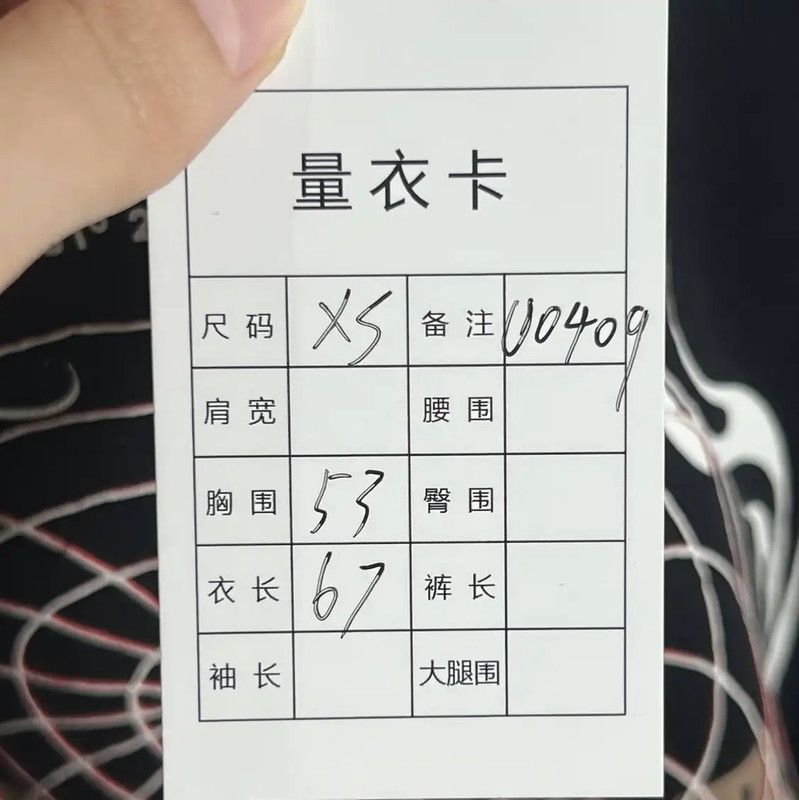 量衣卡
尺码 XS 备注 U0409
肩宽 腰围
胸围 53 臀围
衣长 67 裤长
袖长 大腿围